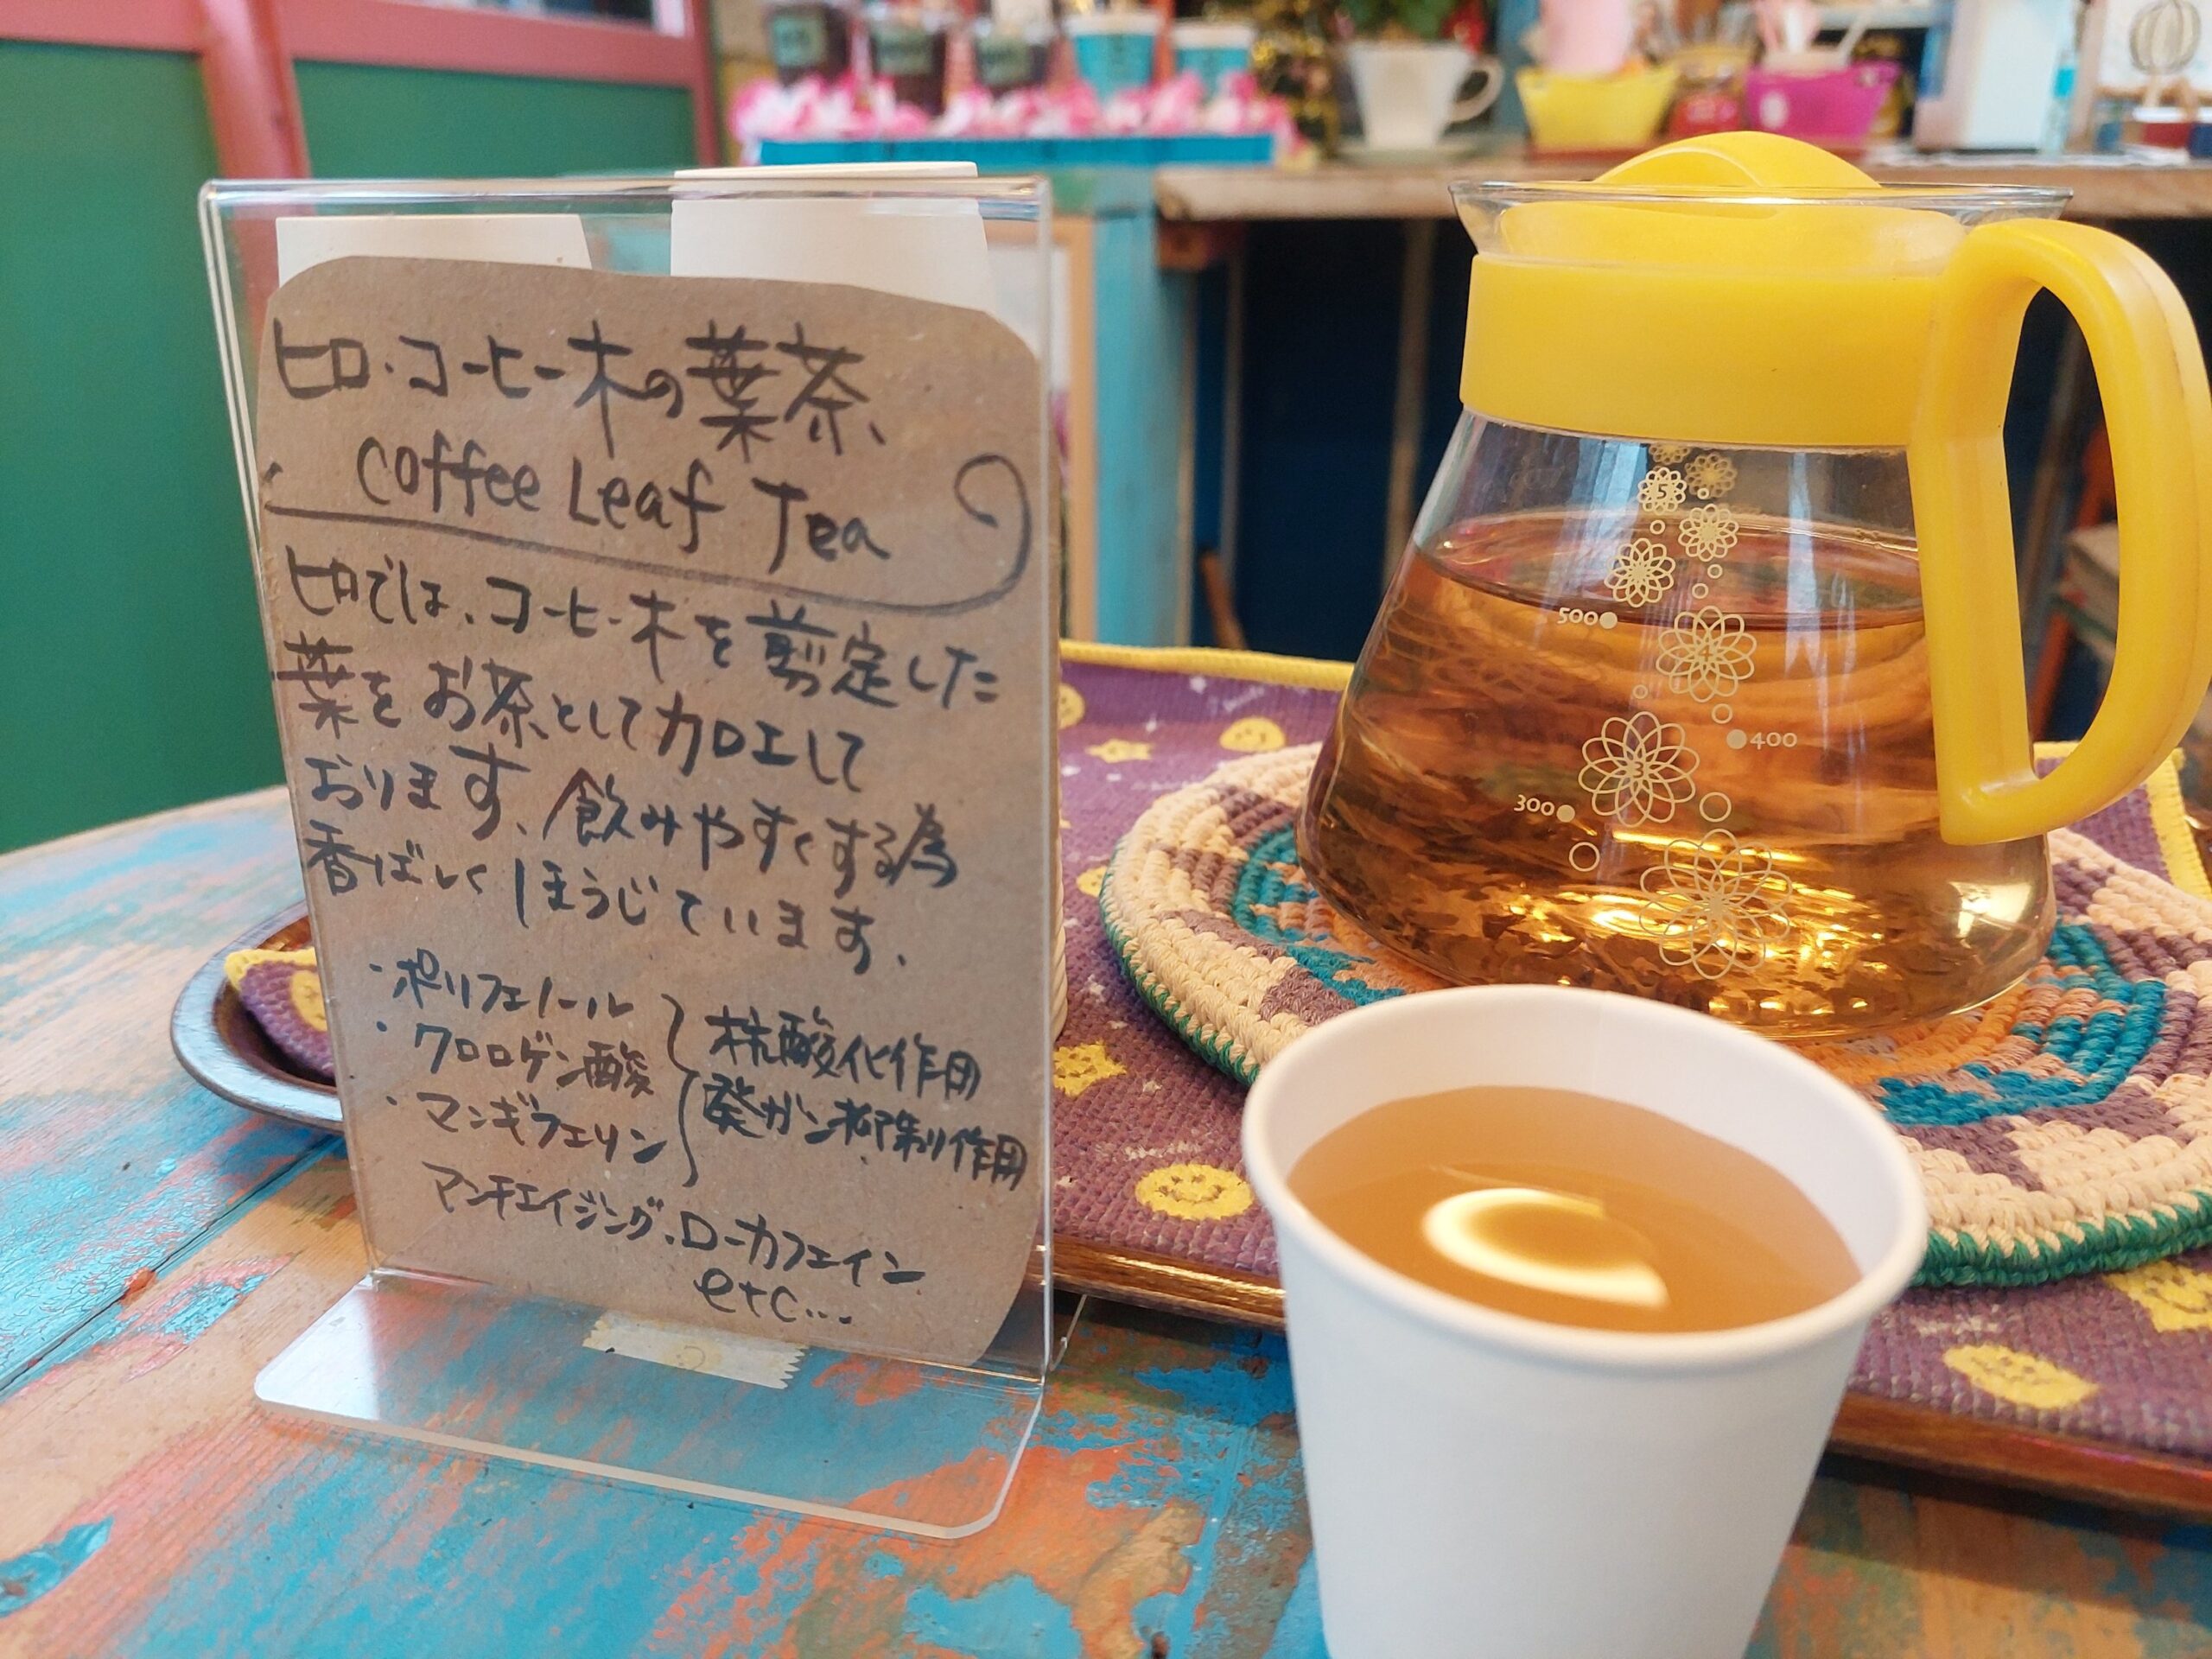 ヒロ・コーヒー木の葉茶
Coffee Leaf Tea
ヒロでは、コーヒー木を剪定した
葉をお茶として加工して
おります、飲みやすくする為
香ばしくほうじています、
・ポリフェノール
・クロロゲン酸
・マンギフェリン
抗酸化作用
発ガン抑制作用
アンチエイジング、ローカフェイン
etc...
5
500
4
400
3
300